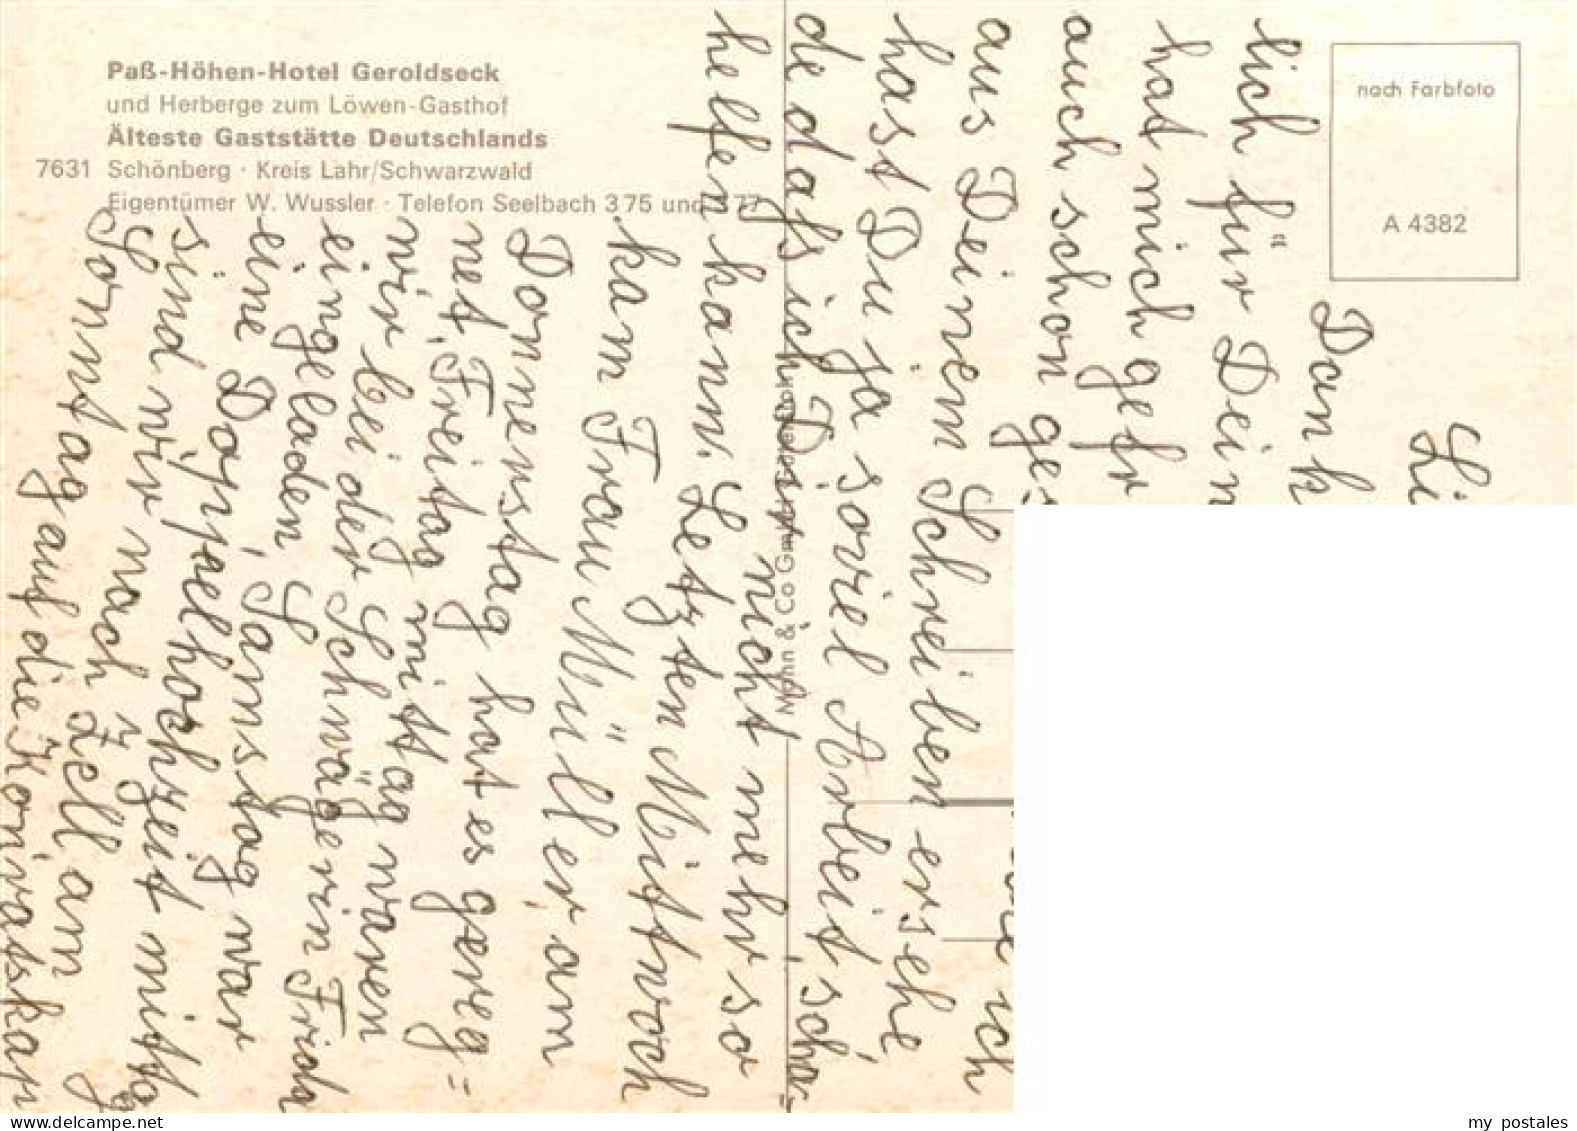 Paß-Höhen-Hotel Geroldseck
und Herberge zum Löwen-Gasthof
Älteste Gaststätte Deutschlands
7631 Schönberg · Kreis Lahr/Schwarzwald
Eigentümer W. Wussler · Telefon Seelbach 375 und 377
nach Farbfoto
A 4382
Mohn & Co GmbH
Dank
lich für Dein
hat mich gefr
auch schon ge
ich
aus Deinem Schreiben ersehe
hast Du ja soviel Arbeit, scha-
de dass ich Dir nicht mehr so
helfen kann. Letzten Mittwoch
kam Frau Müller, am
Donnerstag hat es gereg=
net, Freitag mittag waren
wir bei der Schwägerin Frida
eingeladen, Samstag war
eine Doppelhochzeit mittag
sind wir nach Zell am
Sonntag auf die
my postales
www.delcampe.net